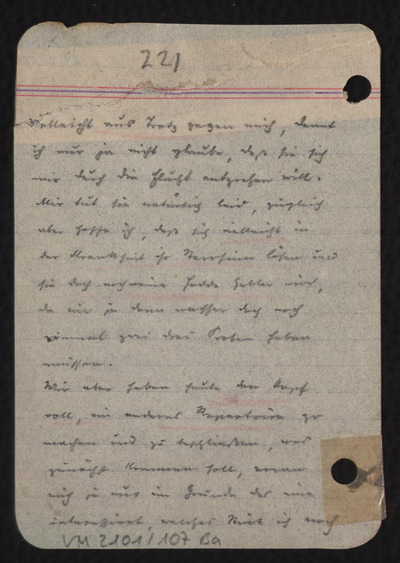 221
Vielleicht aus Trotz gegen mich, damit
ich nur ja nicht glaube, daß sie sich
mir durch die Flucht entziehen will.
Mir tut sie natürlich leid, zugleich
aber hoffe ich, daß sich vielleicht in
der Krankheit ihr Starrsinn lösen und
sie doch noch meine Hedda Gabler wird,
da wir ja dann nachher doch noch
einmal zwei drei Proben haben
müssen.
Wir aber haben heute den Kopf
voll, ein anderes Repertoire zu
machen und zu beschließen, was
zunächst kommen soll, woran
mich ja nur im Grunde das eine
interessiert, welches Stück ich noch
VM 2101/107 Ba